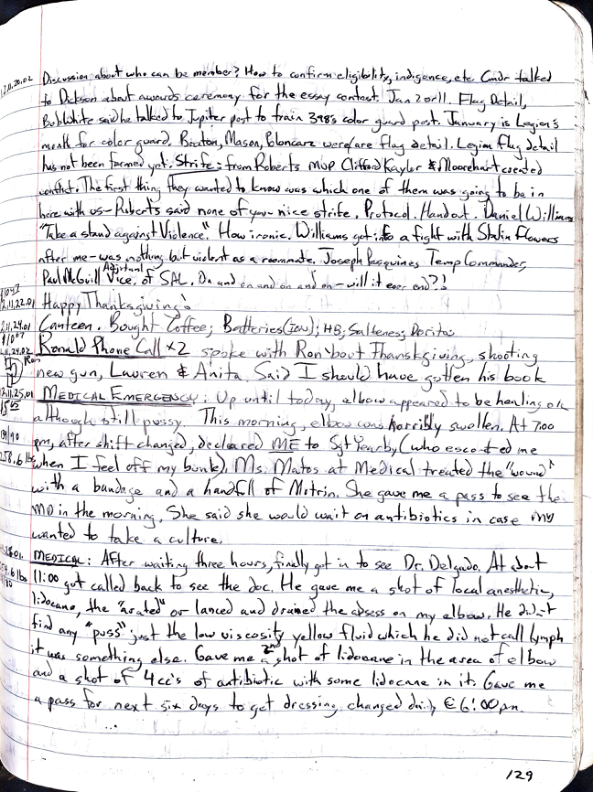 12.11.20.02 Discussion about who can be member? How to confirm eligibility, indigence, etc. Cmdr talked
to Dickson about awards ceremony for the essay contest. Jan 2011. Flag Detail,
Bob White said he talked to Jupiter post to train 398's color guard post. January is Legion's
month for color guard. Mason, were/are flag detail. Legion flag detail
has not been formed yet. Strife: from Roberts MOP Clifford Kayler & Moorehart created
conflict. The first thing they wanted to know was which one of them was going to be in
here with us - Roberts said none of you - nice strife. Protocol. Handout. Daniel Williams
"Take a stand against Violence." How ironic. Williams got into a fight with Stalin Flowers
after me - was nothing but violent as a roommate. Joseph Pasquines, Temp Commander,
Paul McGuill Adjutant Vice, of SAL. On and on and on and on - will it ever end?!
12.11.22.01 Happy Thanksgiving!
12.11.24.01 Canteen. Bought Coffee; Batteries; HB; Saltenes; Doritos
12.11.24.02 Ronald Phone Call x2 spoke with Ron 'bout Thanksgiving, shooting
Ron new gun, Lauren & Anita. Said I should have gotten his book
12.11.25.01 MEDICAL EMERGENCY: Up until today, elbow appeared to be healing ok
although still pussy. This morning, elbow was horribly swollen. At 7:00
pm, after shift changed, declared ME to Sgt Yearby, (who escorted me
258.6 lbs when I feel off my bunk). Ms. Matos at Medical treated the "wound"
with a bandage and a handfull of Motrin. She gave me a pass to see the
MD in the morning. She said she would wait on antibiotics in case MD
wanted to take a culture.
MEDICAL: After waiting three hours, finally got in to see Dr. Delgado. At about
11:00 got called back to see the doc. He gave me a shot of local anesthetic,
lidocane, the "arated" or lanced and drained the absess on my elbow. He didn't
find any "puss" just the low viscosity yellow fluid which he did not call lymph
it was something else. Gave me 2nd shot of lidocane in the area of elbow
and a shot of 4cc's of antibiotic with some lidocane in it. Gave me
a pass for next six days to get dressing changed daily @ 6:00 pm.
...
129